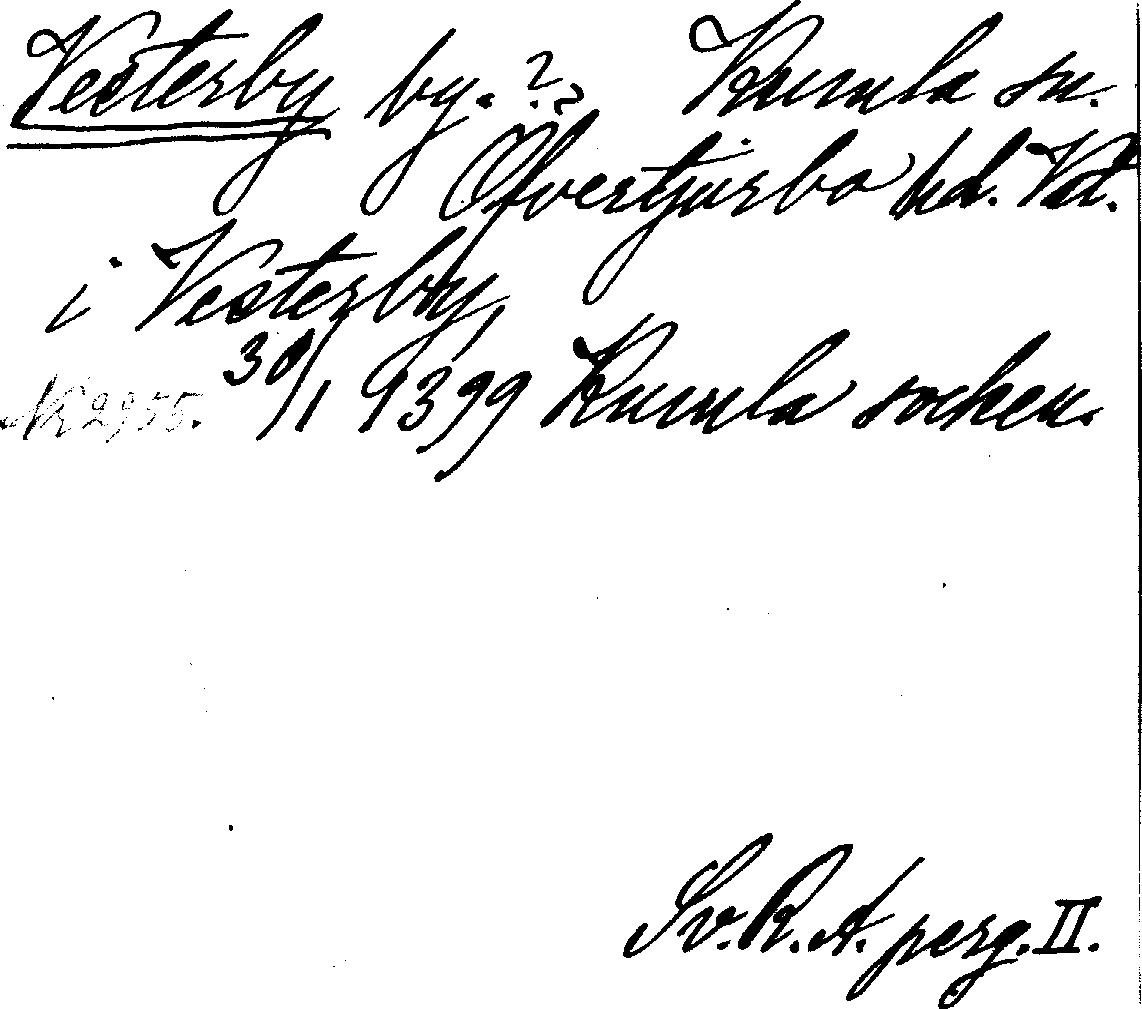 Vesterby by. ? ? Kumla sn.
Öfvertjurbo hd. Vstm.
i Vesterby,
Nr 2955. 30/1 1399 Kumla socken.
Sv. R. A. perg. II.